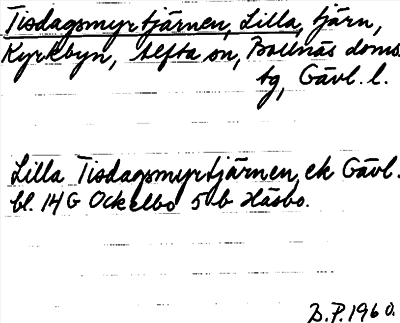 Tisdagsmyrtjärnen, Lilla, tjärn,
Kyrkbyn, Alfta sn, Bollnäs doms.
tg, Gävl. l.
Lilla Tisdagsmyrtjärnen, ek Gävl.
bl. 14 G Ockelbo 5 b Häsbo.
D.P. 1960.